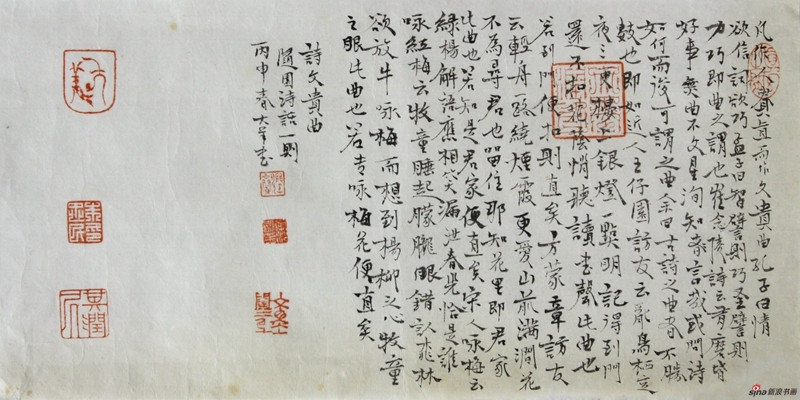 凡作人貴直而作文貴曲孔子曰情
欲信詞欲巧孟子曰智譬則巧聖譬則
力巧即曲之謂也崔念陵詩云有磨皆
好事無曲不文星洵知言哉或問詩
如何而後可謂之曲余曰古詩之曲者不勝
數也即如近人王仔園訪友云亂鳥栖定
夜三更樓上銀燈一點明記得到門
還不扣花陰悄聽讀書聲此曲也
若到門便扣則直矣方蒙章訪友
云輕舟一路繞煙霞更愛山前滿澗花
不為尋君也留住耶知花里即君家
此曲也若知是君家便直矣宋人咏梅云
綠楊解語應相笑漏泄春光恰是誰
咏紅梅云牧童睡起朦朧眼錯认桃林
欲放牛咏梅而想到楊柳之心牧童
之眼此曲也若專咏梅花便直矣
詩文貴曲
隨園詩話一則
丙申春大書
sina新浪书画